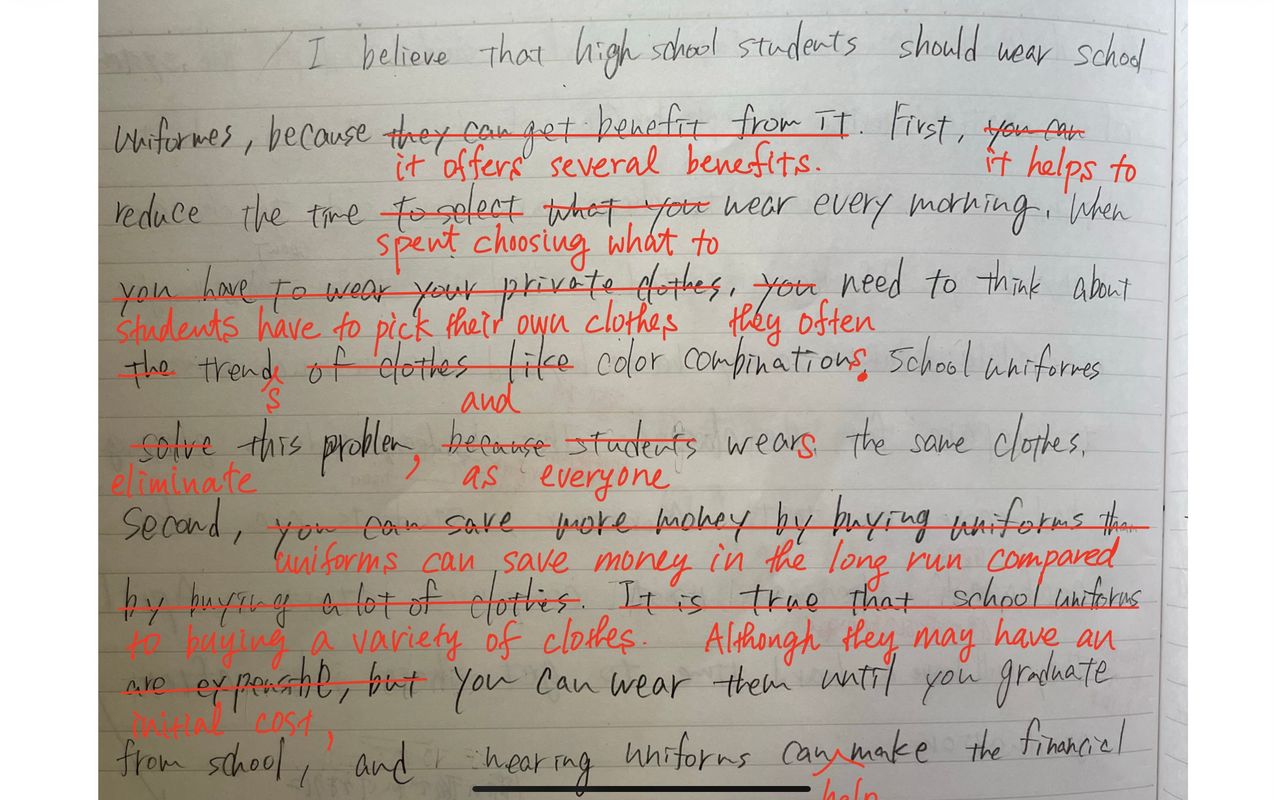 I believe that high school students should wear school
uniformes, because they can get benefit from it. First, you can
it offers several benefits. it helps to
reduce the time to select what you wear every morning. When
spent choosing what to
you have to wear your private clothes, you need to think about
students have to pick their own clothes they often
the trend of clothes like color combinations. School uniformes
s and
solve this problem, because students wears the same clothes.
eliminate as everyone
Second, you can save more money by buying uniforms than
uniforms can save money in the long run compared
by buying a lot of clothes. It is true that school uniforms
to buying a variety of clothes. Although they may have an
are expensible, but you can wear them until you graduate
initial cost,
from school, and wearing uniforms can make the financial
help